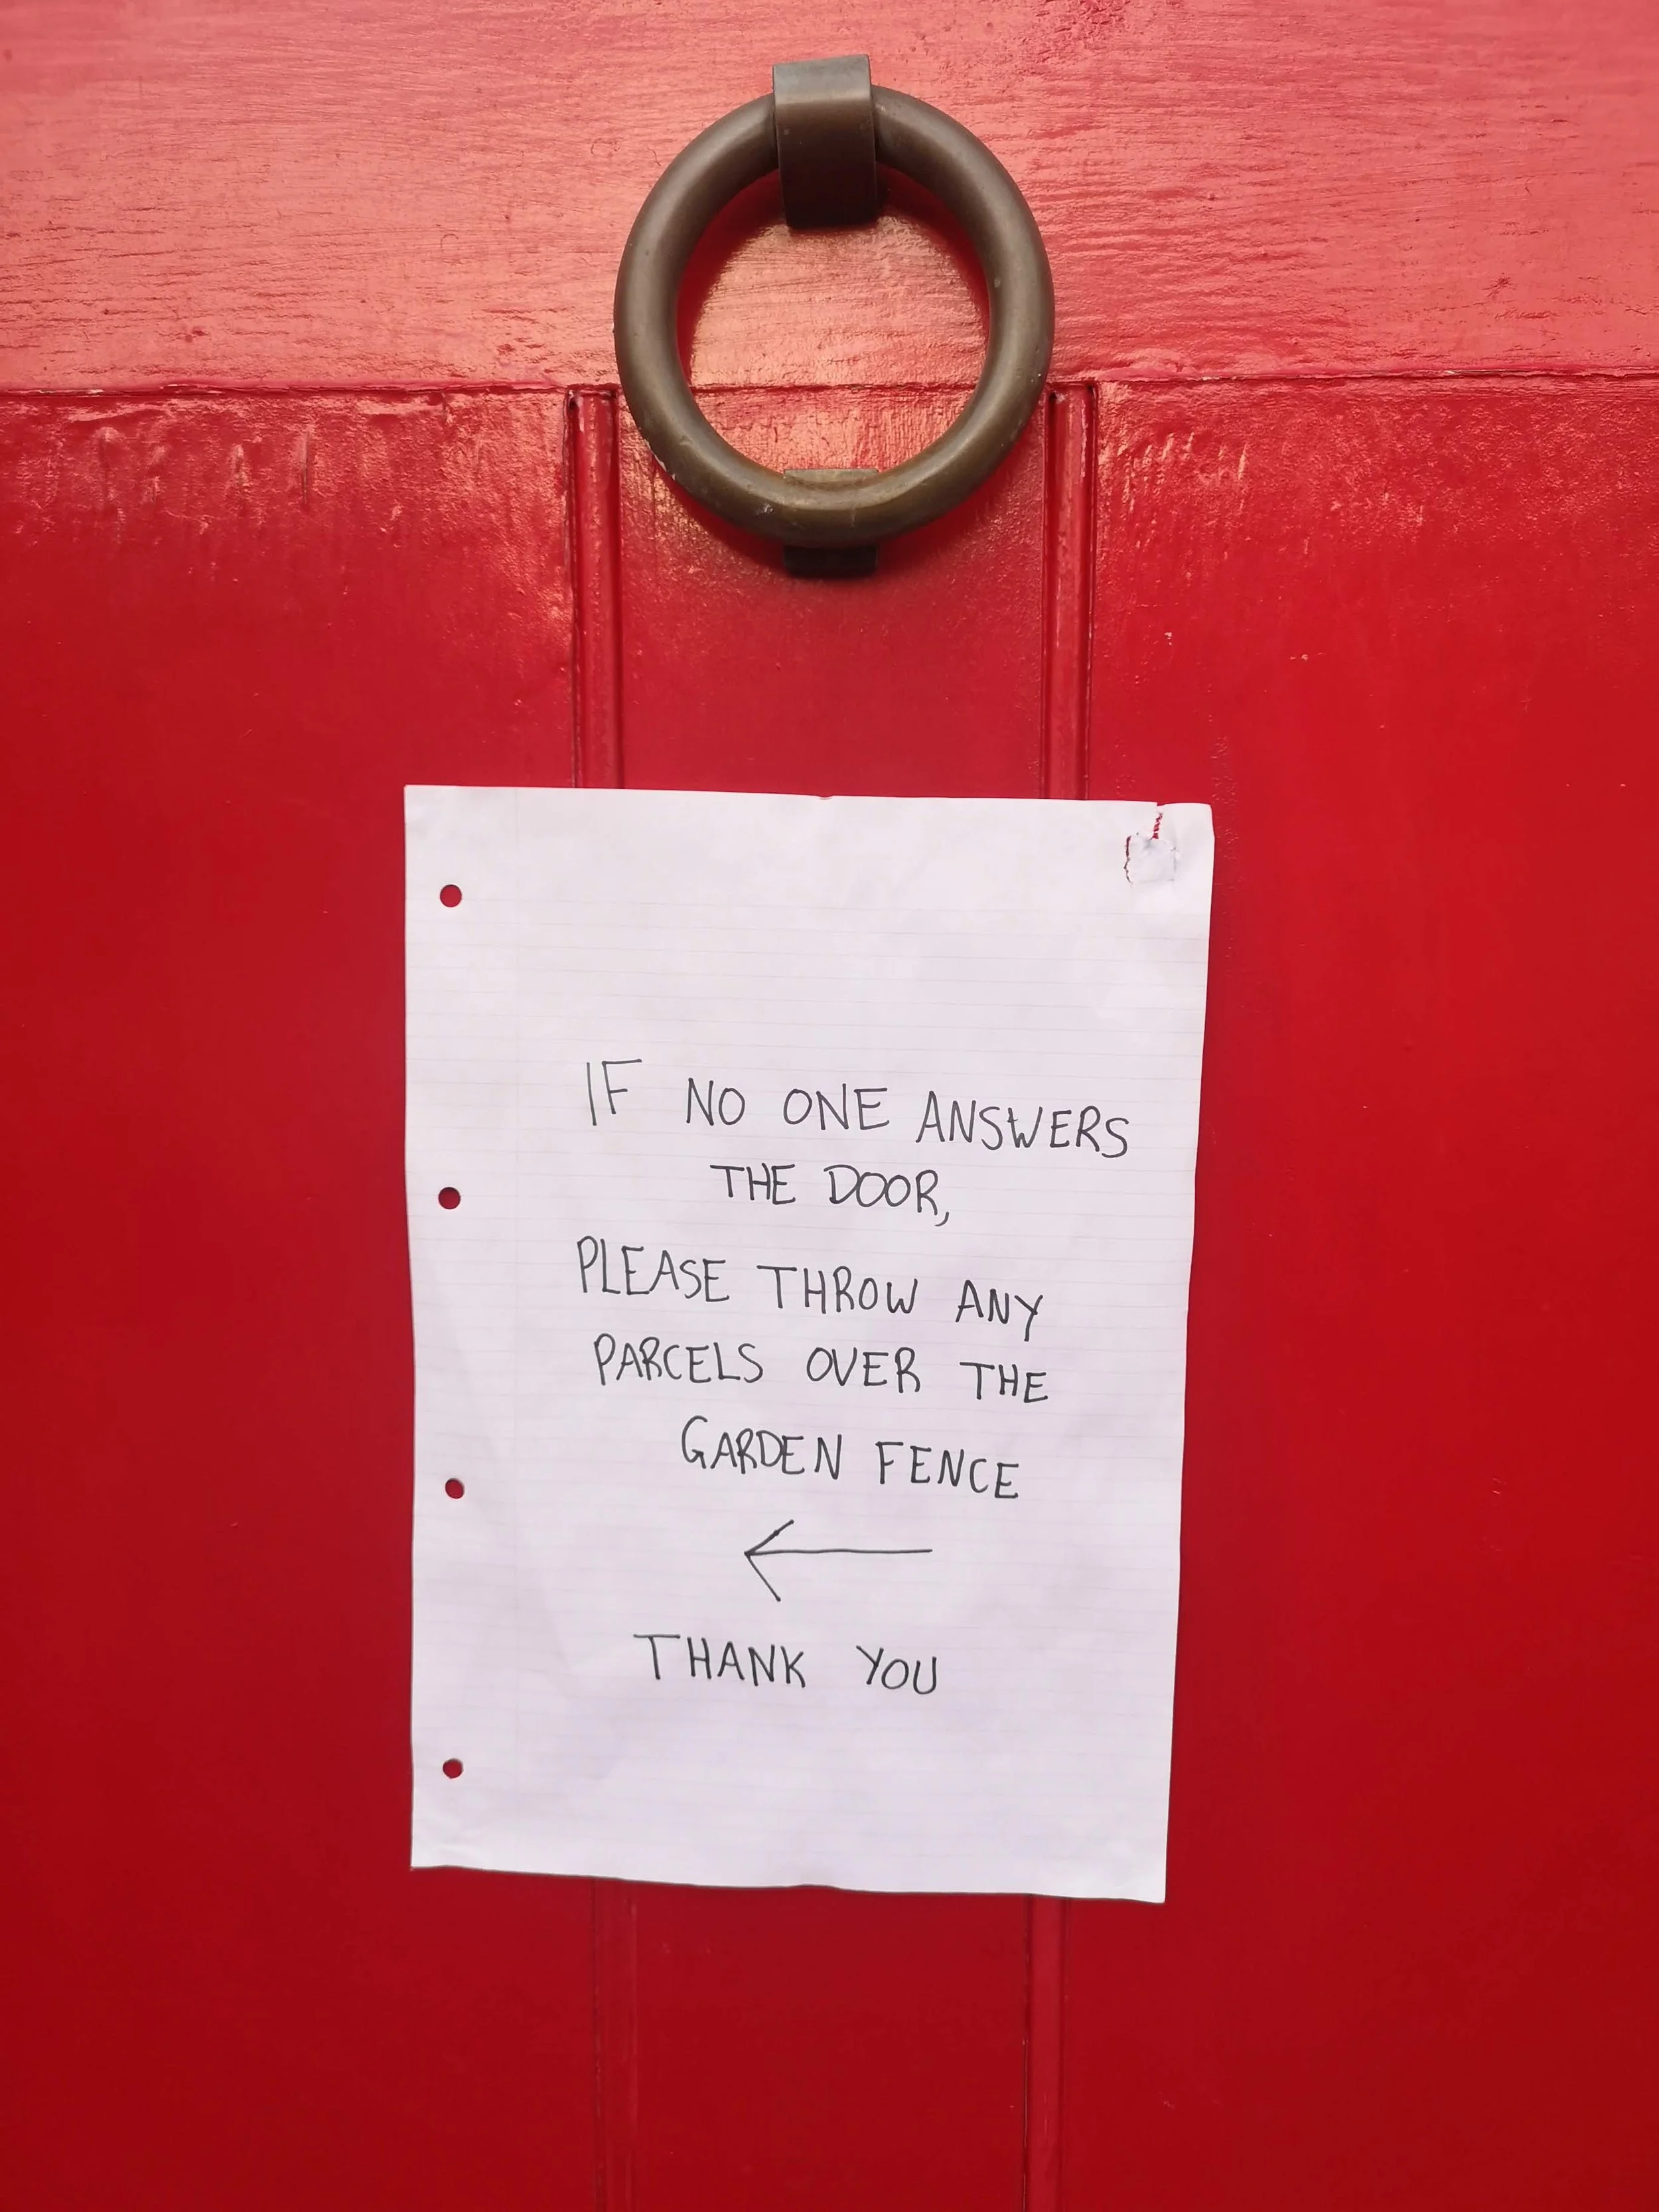 IF NO ONE ANSWERS
THE DOOR,
PLEASE THROW ANY
PARCELS OVER THE
GARDEN FENCE
←
THANK YOU